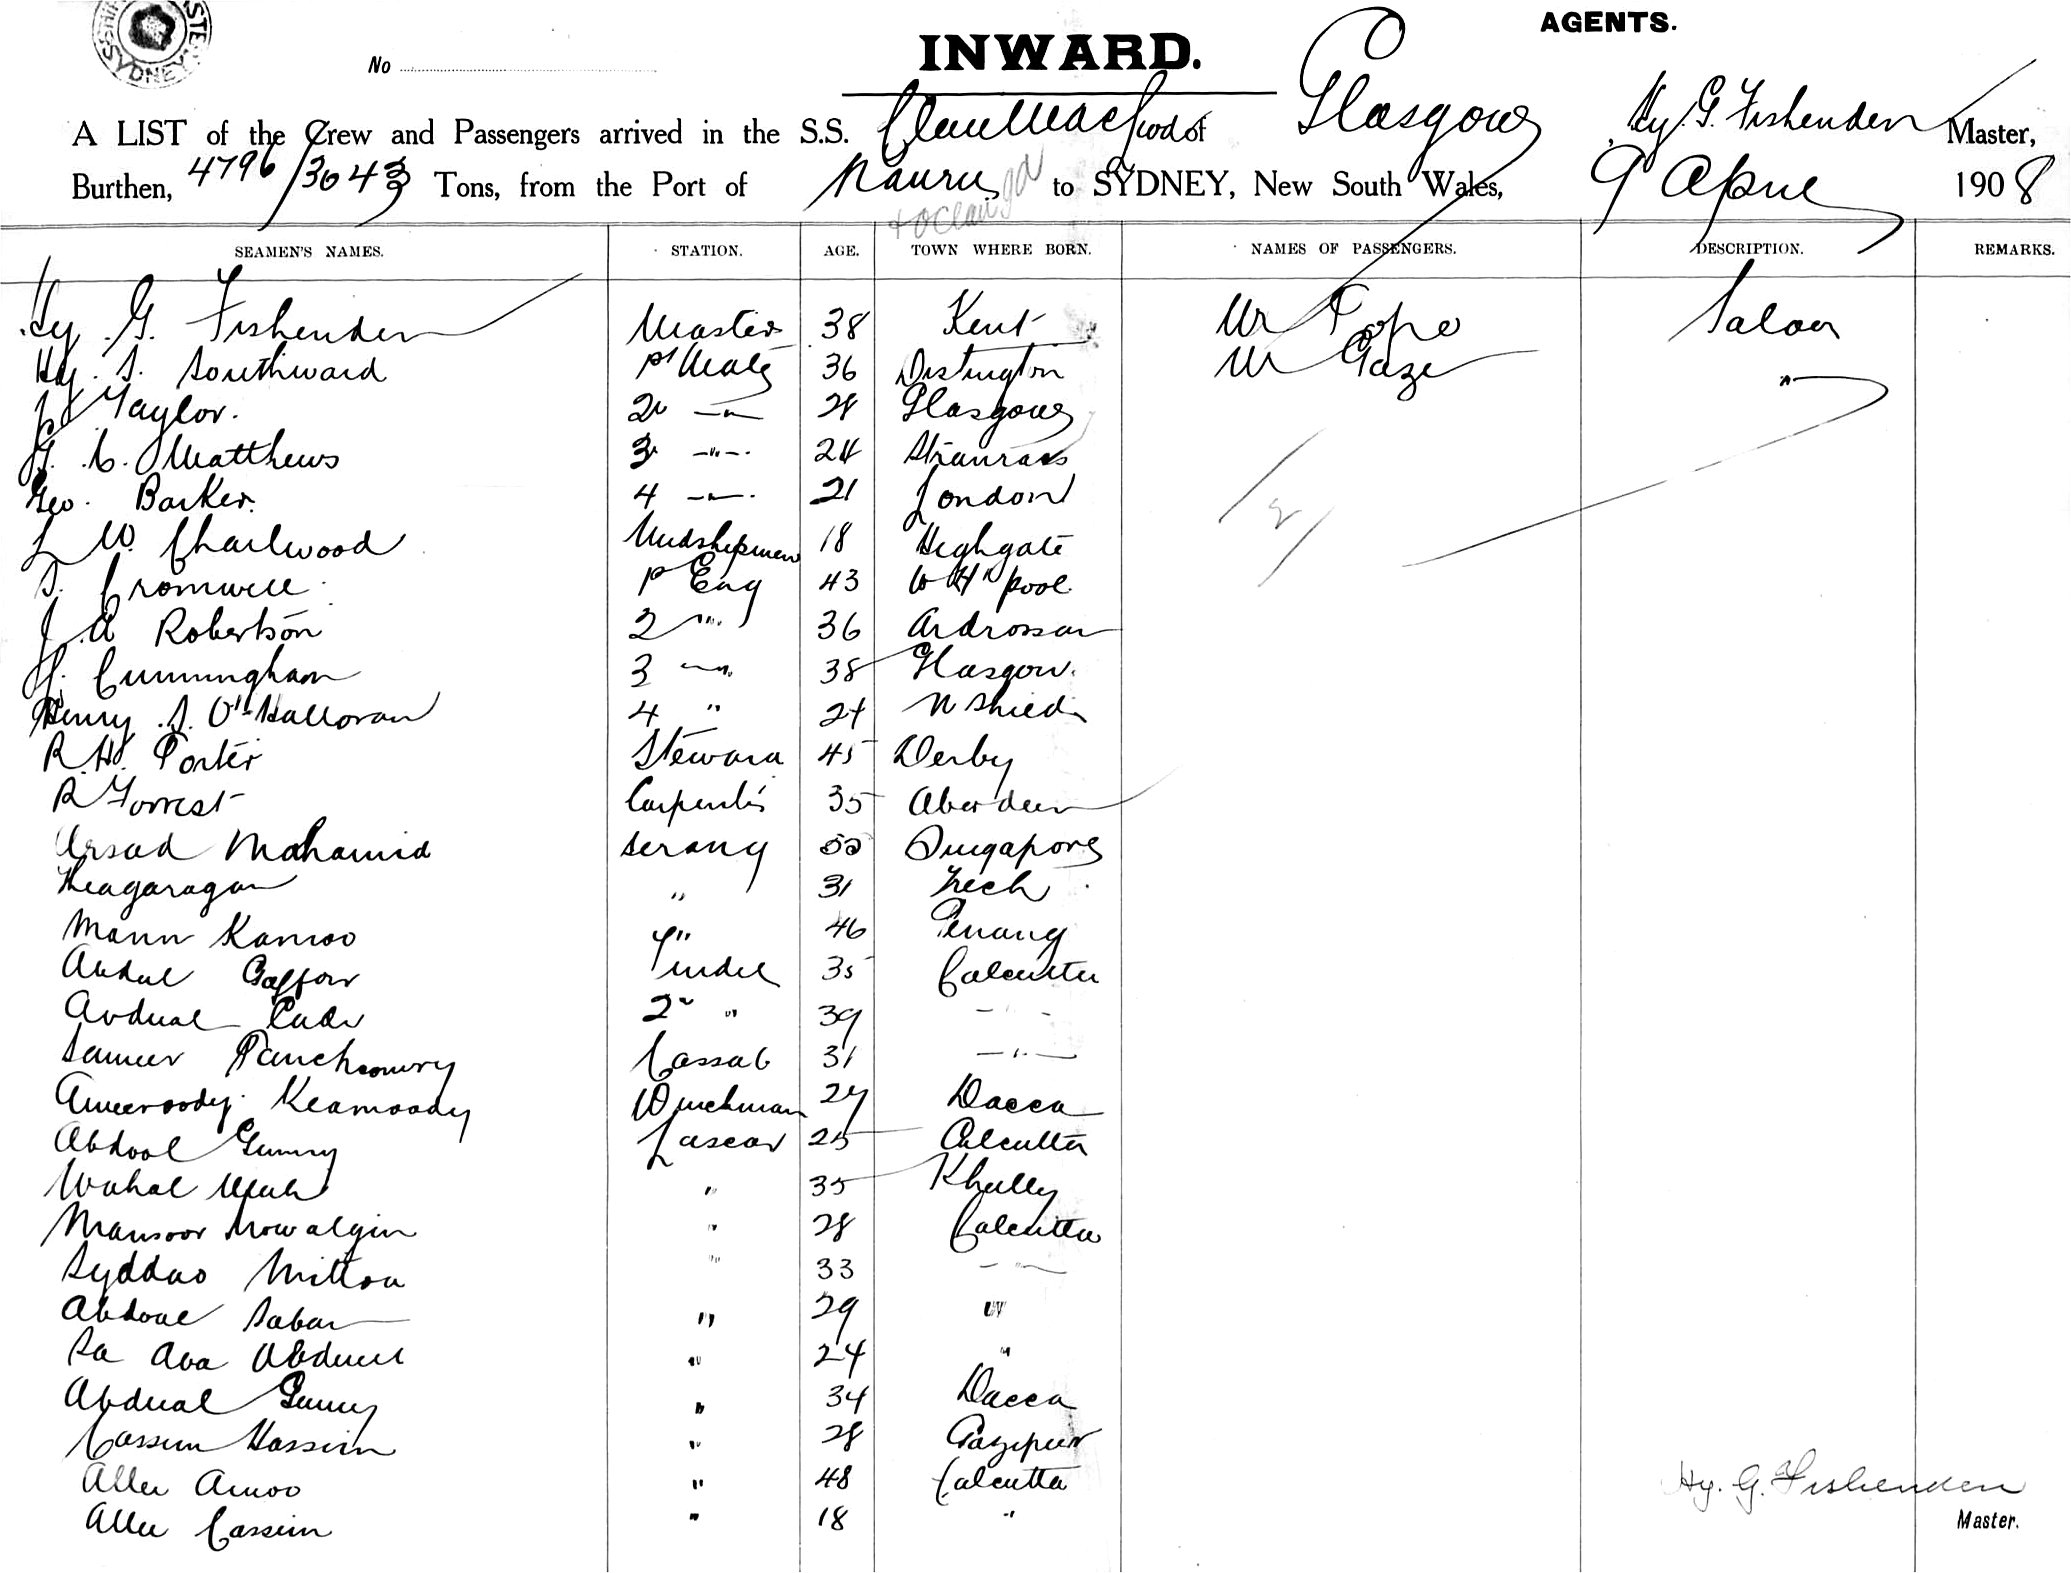 SYDNEY
No
INWARD.
AGENTS.
A LIST of the Crew and Passengers arrived in the S.S. Clan of Glasgow Hy. G. Fishenden Master,
Burthen, 4796/3043 Tons, from the Port of Nauru to SYDNEY, New South Wales, 9 April 1908
+ Ocean
SEAMEN'S NAMES. STATION. AGE. TOWN WHERE BORN. NAMES OF PASSENGERS. DESCRIPTION. REMARKS.
Hy. G. Fishenden Master 38 Kent Mr Pope Saloon
Hy. S. Southward 1st Mate 36 Distington Mr Gaze "
Taylor. 2 " 28 Glasgow
Matthews 3 " 24 Stranraer
Geo. Barker. 4 " 21 London
L W. Charlwood Midshipman 18 Highgate
S. Cromwell 1st Eng 43 W H pool
J. A Robertson 2 " 36 Ardrossan
H. Cunningham 3 " 38 Glasgow.
Henry S. O'Halloran 4 " 24 N Shields
R. H. Porter Steward 45 Derby
R Forrest Carpenter 35 Aberdeen
Ursad Mahamid Serang Singapore
" 31
Mann Kamoo " 46 Penang
Abdul Gaffor Tindel 35 Calcutta
Abdual 2 " 39 "
Sameer Cassab 31 "
Ameeroody Keamoody Winchman 29 Dacca
Abdool Gunny Lascar 25 Calcutta
Wahal " 35 Khully
Mansoor " 28 Calcutta
Syddoo " 33 "
Abdool Sabar " 29 "
" 24 "
Abdual Gunny " 34 Dacca
Cassim Hassim " 28 Gazipur
Allee Amoo " 48 Calcutta
Allee Cassim " 18 "
Hy. G. Fishenden
Master.